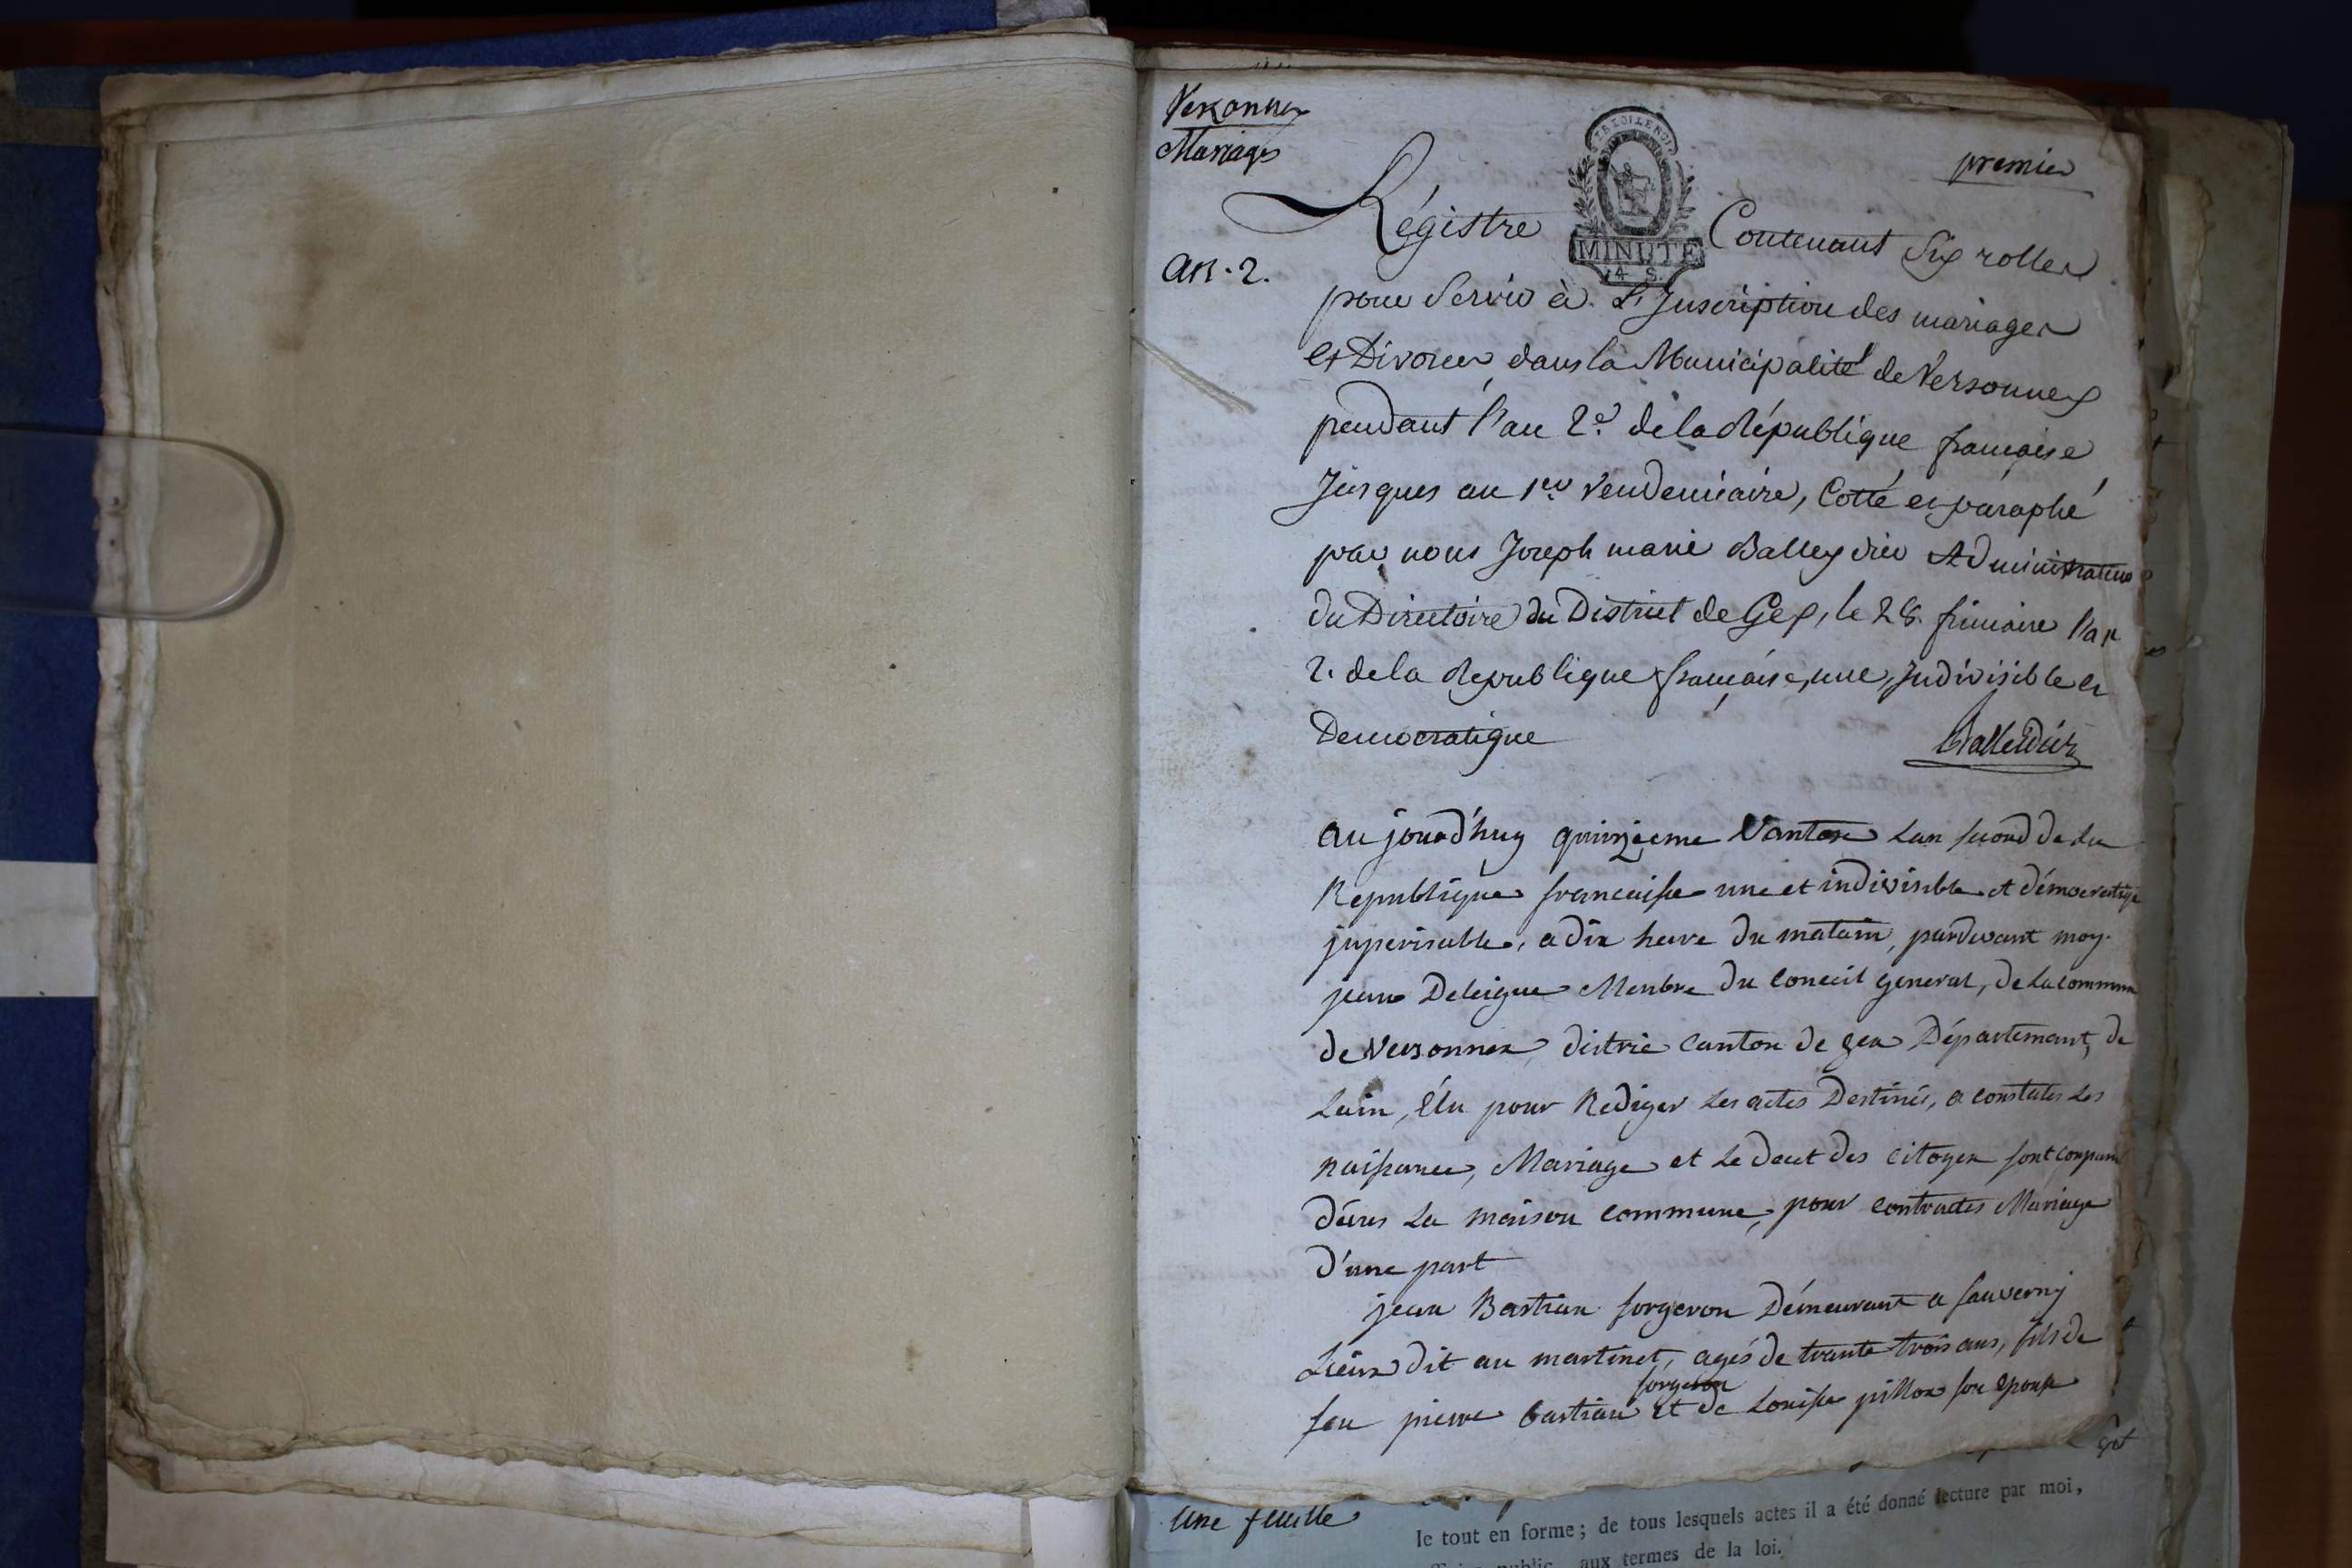 Versonnex
Mariages
premier
an. 2.
MINUTE
4 S.
Régistre Contenant Six rolles
pour Servir à L'Inscription des mariages
et Divorces dans la Municipalité de Versonnex
pendant l'an 2e. de la République francaise
Jusques au 1er. Vendemiaire, Cotté et paraphé
par nous Joseph marie Balleydier Administrateur
du Directoire du District de Gex, le 28. frimaire l'an
2. de la republique francaise, une, Indivisible et
Democratique
Balleidier
au jourd'huy quinzieme Vantose Lan second de la
Republique francaisse une et indivisible et démocratique
jnperisable, a dix heure du matain, pardevant moy
jean Deleigue Menbre du Conceil general, de La commune
de Versonnex district canton de gex Département, de
Lain, Élu pour Rediger Les actes Destinés, a constater Les
naissance, Mariage et Le decet des citoyen sont
La maison commune, pour contracter Mariage
D'une part
jean Bastian forgeron Démeurant a sauverny
Lieux dit au martinet, agés de trante trois ans, fils de
forgeron
feu pierre bastian et de Louisse pillon son Epouse
Une feuille
le tout en forme ; de tous lesquels actes il a été donné lecture par moi,
public aux termes de la loi.